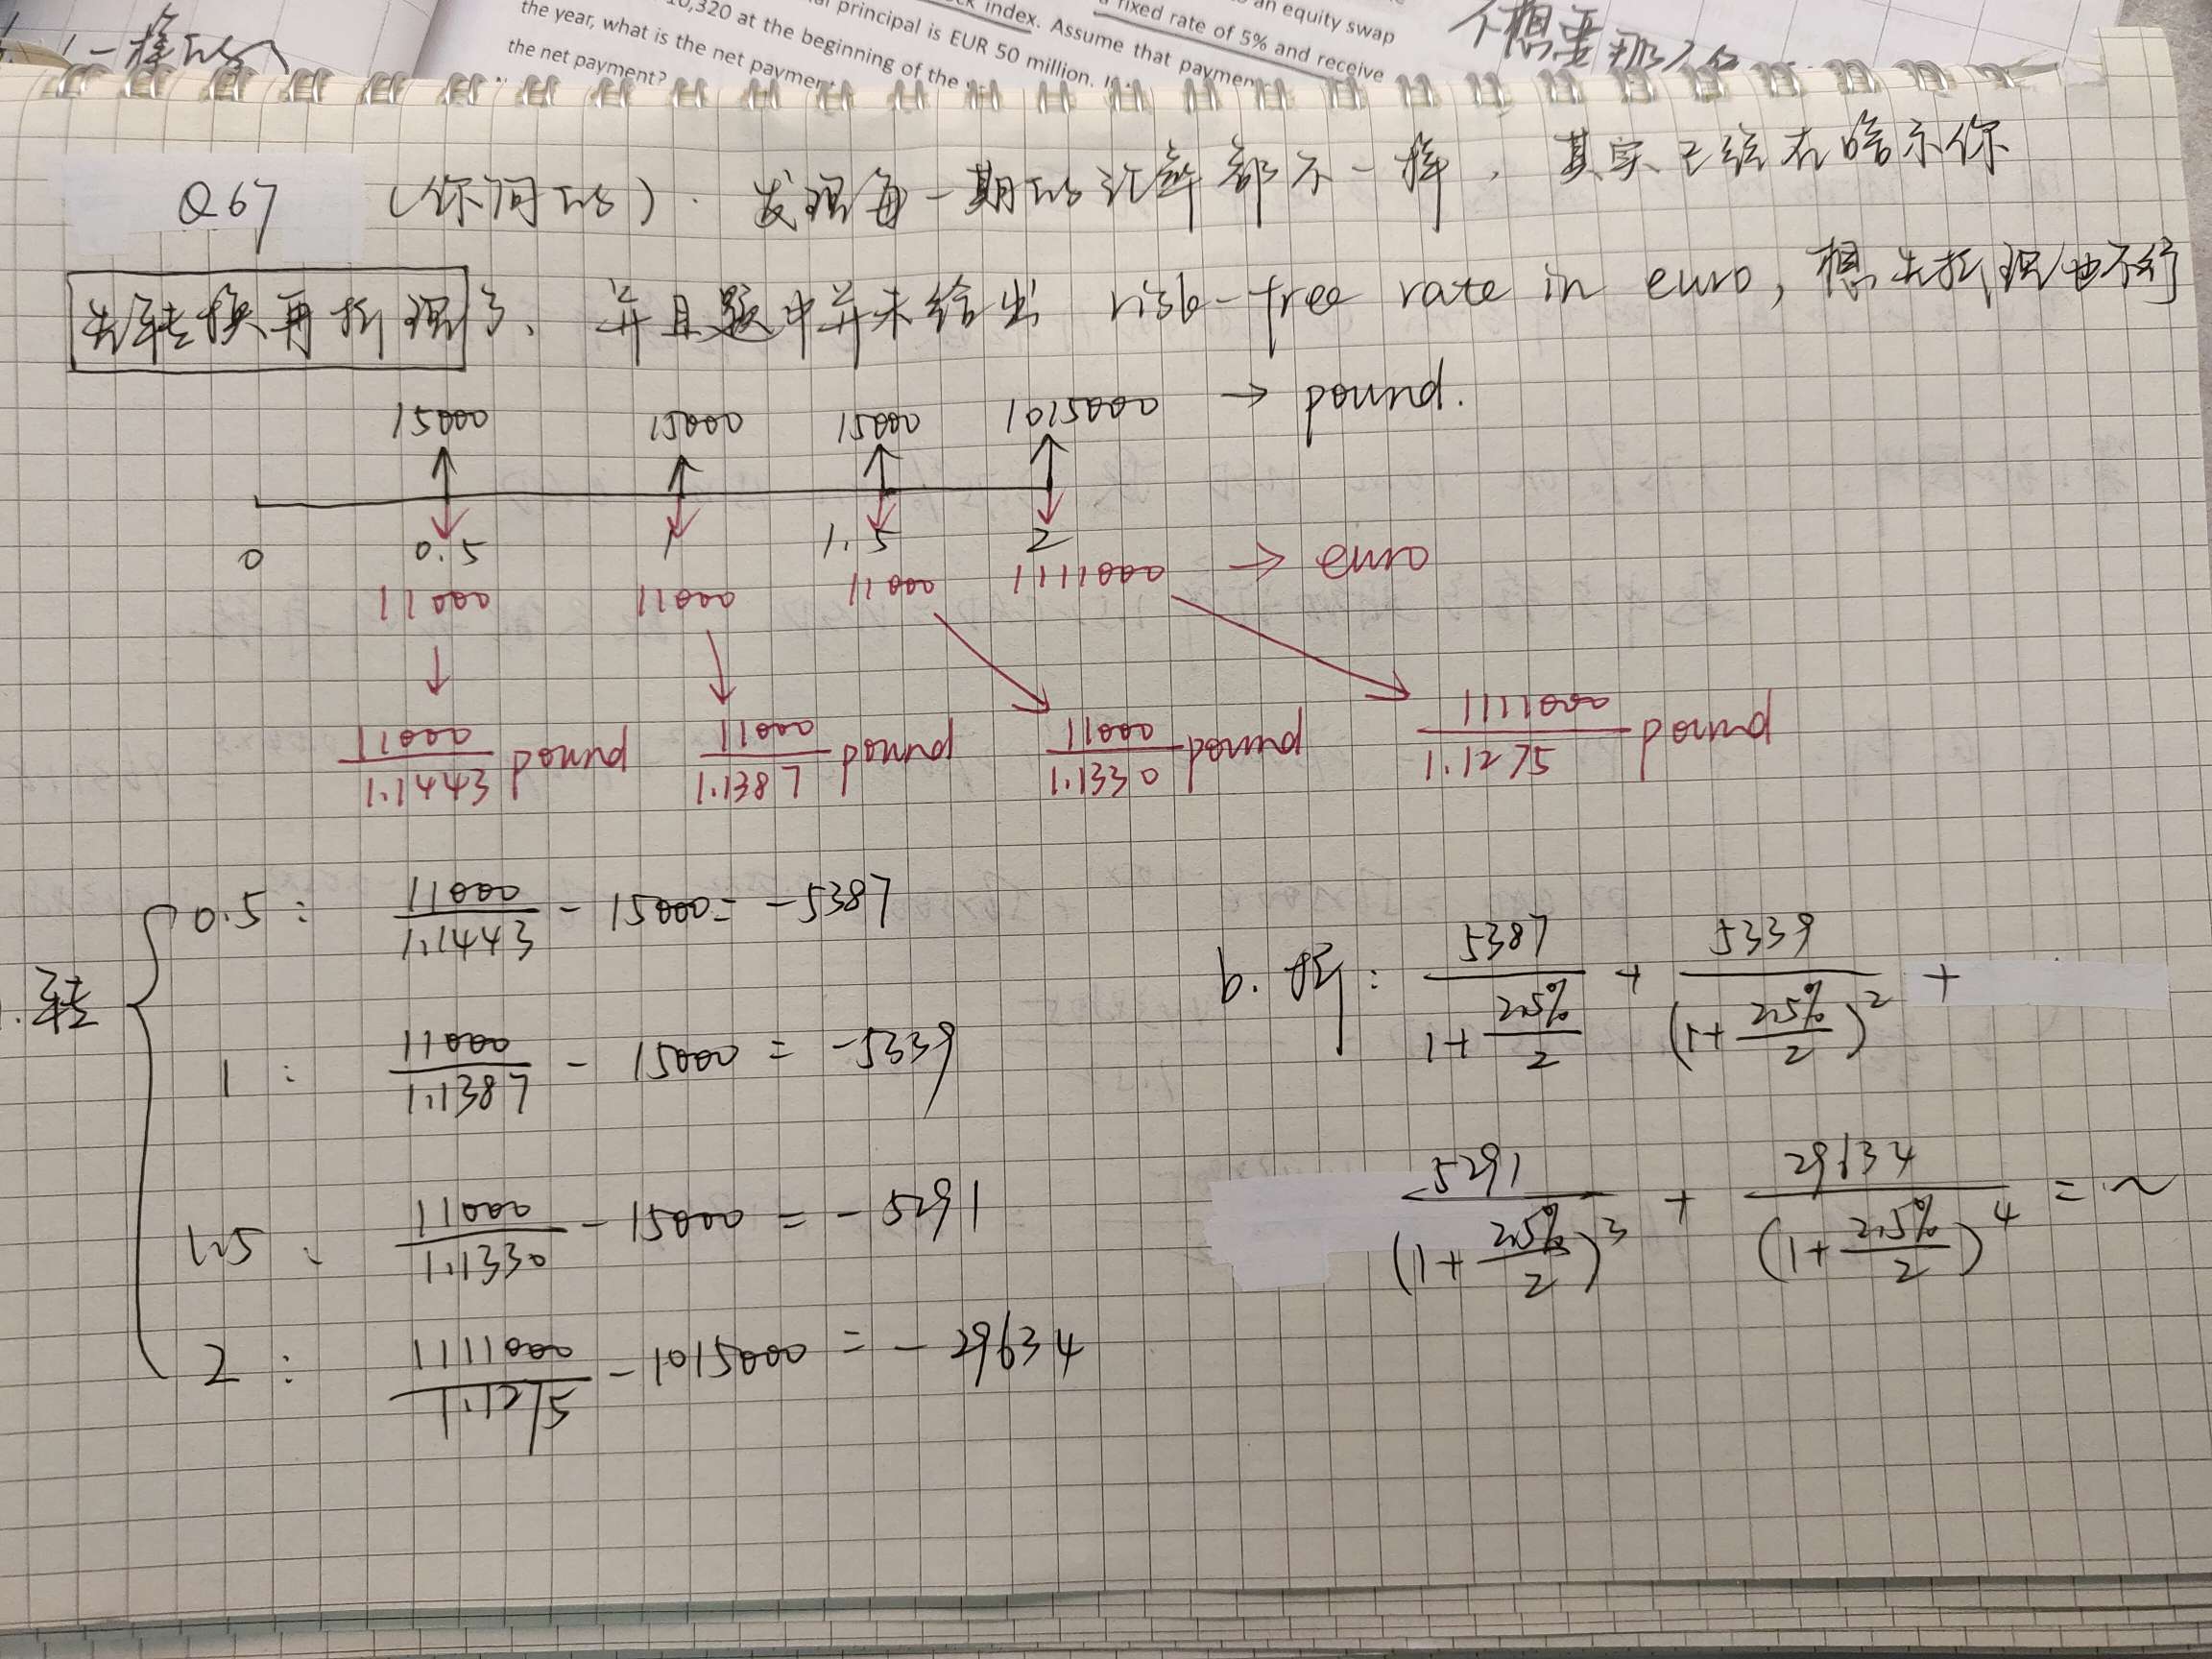 一样的
不想要那个
10,320 at the beginning of the
principal is EUR 50 million.
index. Assume that paymen
fixed rate of 5% and receive
an equity swap
the year, what is the net paymen
the net payment?
Q67 (你问的). 发现每一期的汇率都不一样, 其实已经在暗示你
先转换再折现了、并且题中并未给出 risk-free rate in euro, 想先折现也不行
15000 15000 15000 1015000 → pound.
0 0.5 1 1.5 2
11000 11000 11000 1111000 → euro
11000/1.1443 pound 11000/1.1387 pound 11000/1.1330 pound 1111000/1.1275 pound
转
0.5: 11000/1.1443 - 15000 = -5387
1: 11000/1.1387 - 15000 = -5339
1.5、 11000/1.1330 - 15000 = -5291
2: 1111000/1.1275 - 1015000 = -29634
b. 折: 5387/(1+2.5%/2) + 5339/(1+2.5%/2)^2 +
5291/(1+2.5%/2)^3 + 29634/(1+2.5%/2)^4 = ~